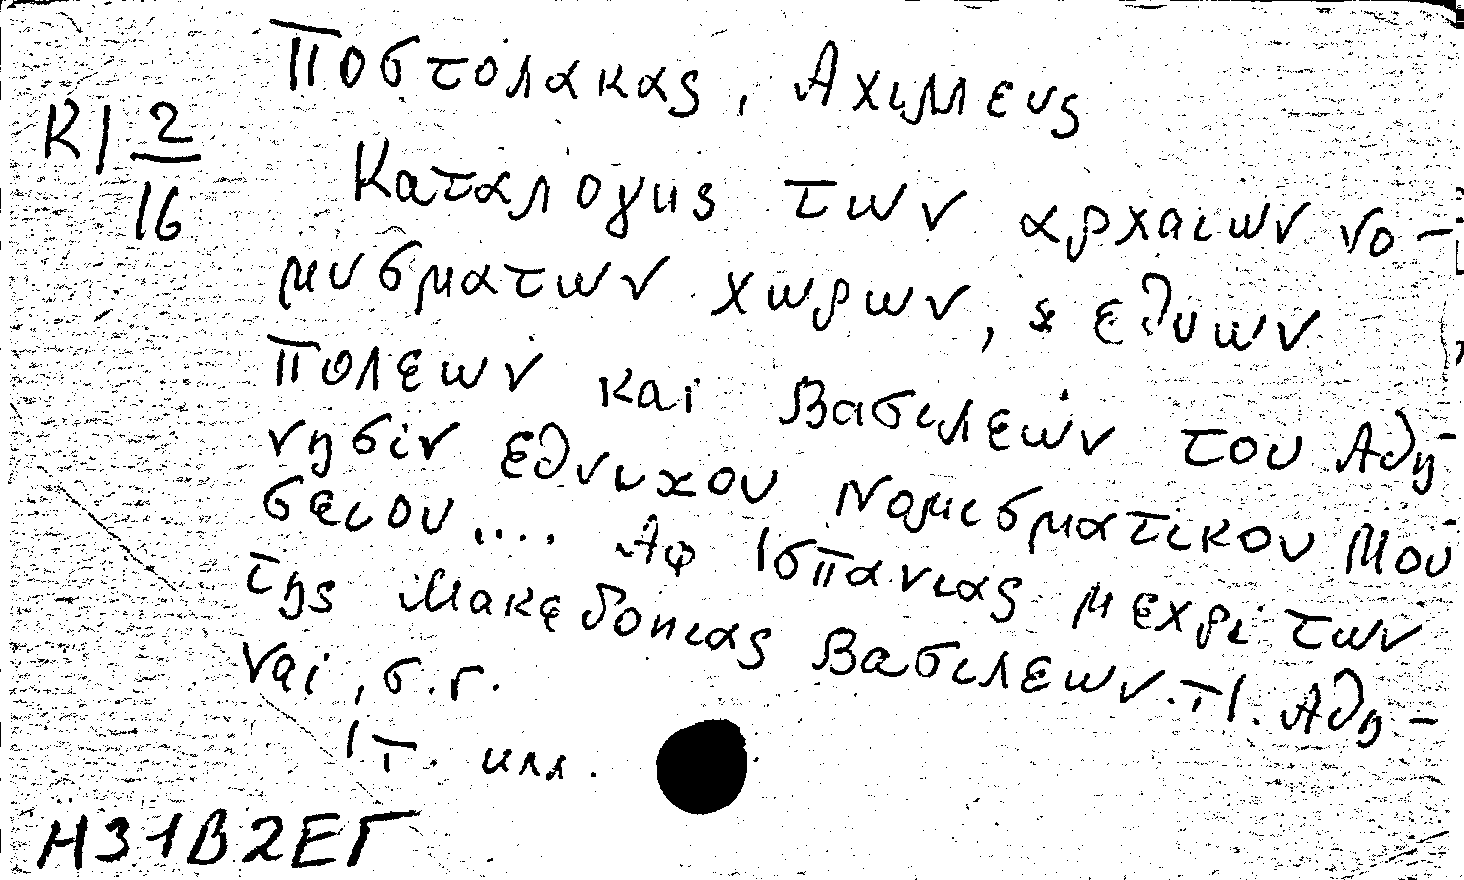 Ποστολακας, Αχιλλευς
К| 2/16
Καταλογυς των αρχαιων νο-
μυσματων χωρων, & εθυων
πολεων και Βασιλεων του Αθη-
νησιν εθνικου Νομισματικου Μου
σειου.... Αφ Ισπανιας μεχρι των
της Μακεδοπιας Βασιλεων. τ1. Αθη-
ναι, σ.г.
1т. илл.
H31B2ЕГ